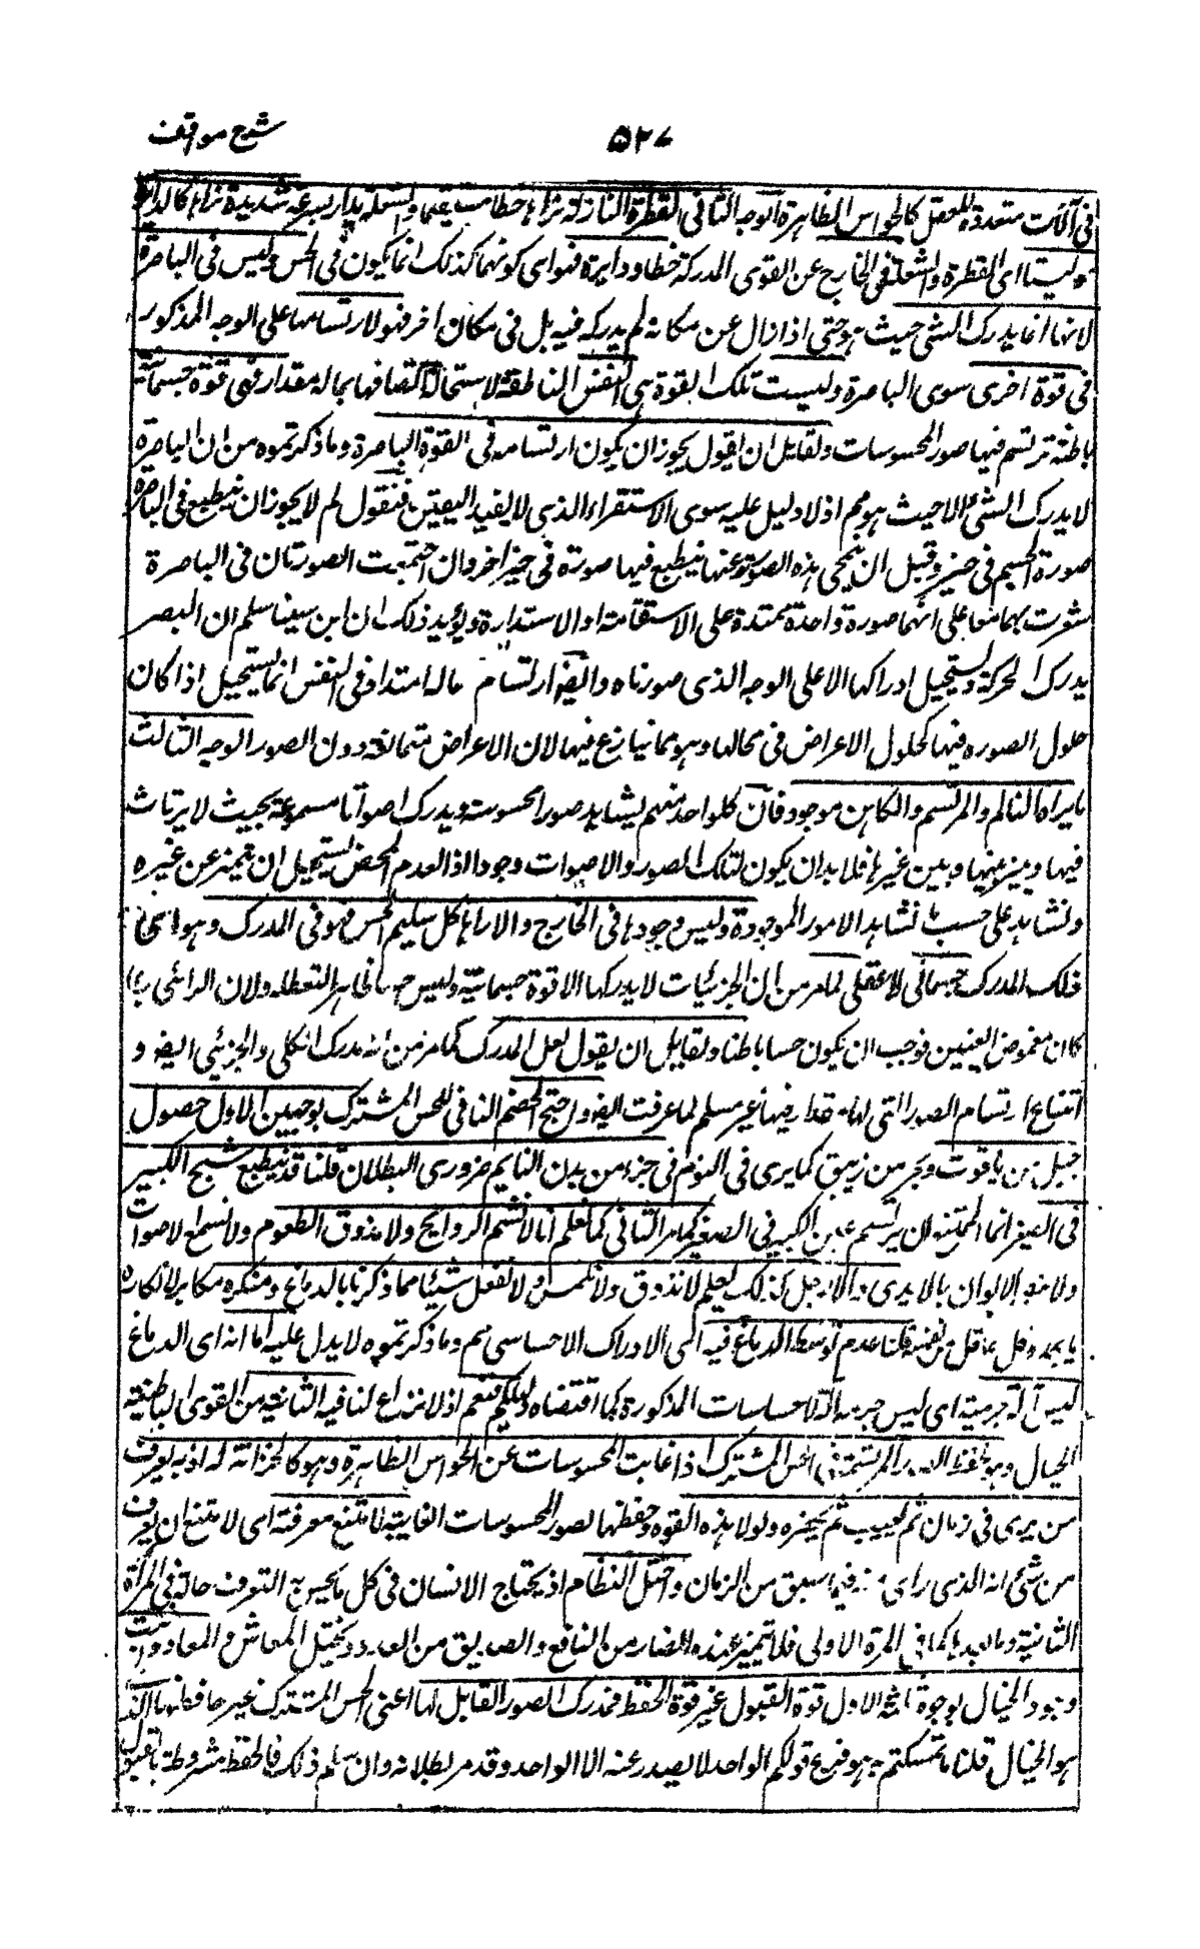 شرح مواقف
۵۲۷
فى آلات متعددة للعقل كالحواس الظاهرة الوجه الثانى القطرة النازلة نراها خطا مستقيما والشعلة يدار بسرعة شديدة نراها كالدائرة
وليستا اى القطرة والشعلة فى الخارج عن القوى المدركة خطا ودايرة فهو اى كونهما كذلك انما يكون فى الحس وليس فى الباصرة
لانها انما يدرك الشى حيث هو حتى اذا زال عن مكانه لم يدركه فيه بل فى مكان اخر فهو لارتسامها على الوجه المذكور
فى قوة اخرى سوى الباصرة وليست تلك القوة هى النفس الناطقة لاستحالة اتصافها بماله مقدار فهى قوة جسمانية
باطنة ترتسم فيها صور المحسوسات ولقايل ان يقول يجوز ان يكون ارتسامه فى القوة الباصرة وما ذكرتموه من ان الباصرة
لا يدرك الشئ الا حيث هو مم اذ لا دليل عليه سوى الاستقراء الذى لا يفيد اليقين فنقول لم لا يجوز ان ينطبع فى الباصرة
صورة الجسم فى حيز وقبل ان ينمحى هذه الصورة عنها ينطبع فيها صورة فى حيز اخر وان اجتمعت الصورتان فى الباصرة
شعرت بهما معا على انهما صورة واحدة ممتدة على الاستقامة او الاستدارة ويؤيد ذلك ان ابن سينا سلم ان البصر
يدرك الحركة ويستحيل ادراكها الا على الوجه الذى صورناه وايضا ارتسام ماله امتداد فى النفس انما يستحيل اذا كان
حلول الصوره فيها كحلول الاعراض فى محالها وهو مما نيازع فيها لان الاعراض متمانعة دون الصور الوجه الثالث
ما يراه النائم والمرتسم والكاهن موجود فان كلواحد منهم يشاهد صورا محسوسة ويدرك اصواتا مسموعة بحيث لا يرتاب
فيها ويميز بينها وبين غيرها فلا بد ان يكون لتلك الصور والاصوات وجود اذ العدم المحض يستحيل ان يتميز عن غيره
ونشاهد على حسب ما نشاهد الامور الموجودة وليس وجودها فى الخارج والا راها كل سليم الحس فهو فى المدرك وهو اى
ذلك المدرك جسمانى لا عقلى لما مر من ان الجزئيات لا يدركها الا قوة جسمانية وليس حسا ظاهرا لتعطله ولان الرائى ربما
كان مغموض العينين فوجب ان يكون حسا باطنا ولقايل ان يقول لعل المدرك كما مر من انه مدرك الكلى والجزئى ايضا و
امتناع ارتسام الصور التى لها مقدار فيها غير مسلم لما عرفت ايضا واحتج الخصم النافى للحس المشترك بوجهين الاول حصول
جبل من ياقوت وبحر من زيبق كما يرى فى النوم فى جزء من بدن النايم ضرورى البطلان قلنا قد ينطبع شبح الكبير
فى الصغير انما الممتنع ان يرتسم عين الكبير فى الصغير كما مر الثانى كما نعلم انا لا نشم الروايح ولا نذوق الطعوم ولا نسمع الاصوات
ولا نرى الالوان بالايدى والارجل كذلك نعلم لا نذوق ولا نلمس ولا نفعل شيئا مما ذكرنا بالدماغ ومنكره مكابر لانكاره
ما يجده كل عاقل من نفسه قلنا عدم توسط الدماغ فيه اى الادراك الاحساسى مم وما ذكرتموه لا يدل عليه اما انه اى الدماغ
ليس آلة جرمية اى ليس جرمه آلة لاحساسات المذكورة كما اقتضاه دليلكم فنعم اذ لا نزاع لنا فيه الثانية من القوى الباطنية
الخيال وهو يحفظ الصور المرتسمة فى الحس المشترك اذا غابت المحسوسات عن الحواس الظاهرة وهو كالخزانة له اذ به يعرف
من يرى فى زمان ثم يغيب ثم يحضره ولولا هذه القوه وحفظها لصور المحسوسات الغايبة لامتنع معرفته اى لامتنع ان يعرف
من شئ انه الذى راى فيما سبق من الزمان واختل النظام اذ يحتاج الانسان فى كل ما يحس به التعرف حاله فى المرة
الثانية وما بعدها كما فى المرة الاولى فلا يتميز عنده الضار من النافع والصديق من العدو ويختل المعاش والمعاد واثبت
وجود الخيال بوجوة ثلثة الاول قوة القبول غير قوة الحفظ فمدرك الصور القابل لها اعنى الحس المشترك غير حافظها الذى
هو الخيال قلنا ما تمسكتم به هو فرع قولكم الواحد لا يصدر عنه الا الواحد وقد مر بطلانه وان سلم ذلك فالحفظ مشروطة بالقبول